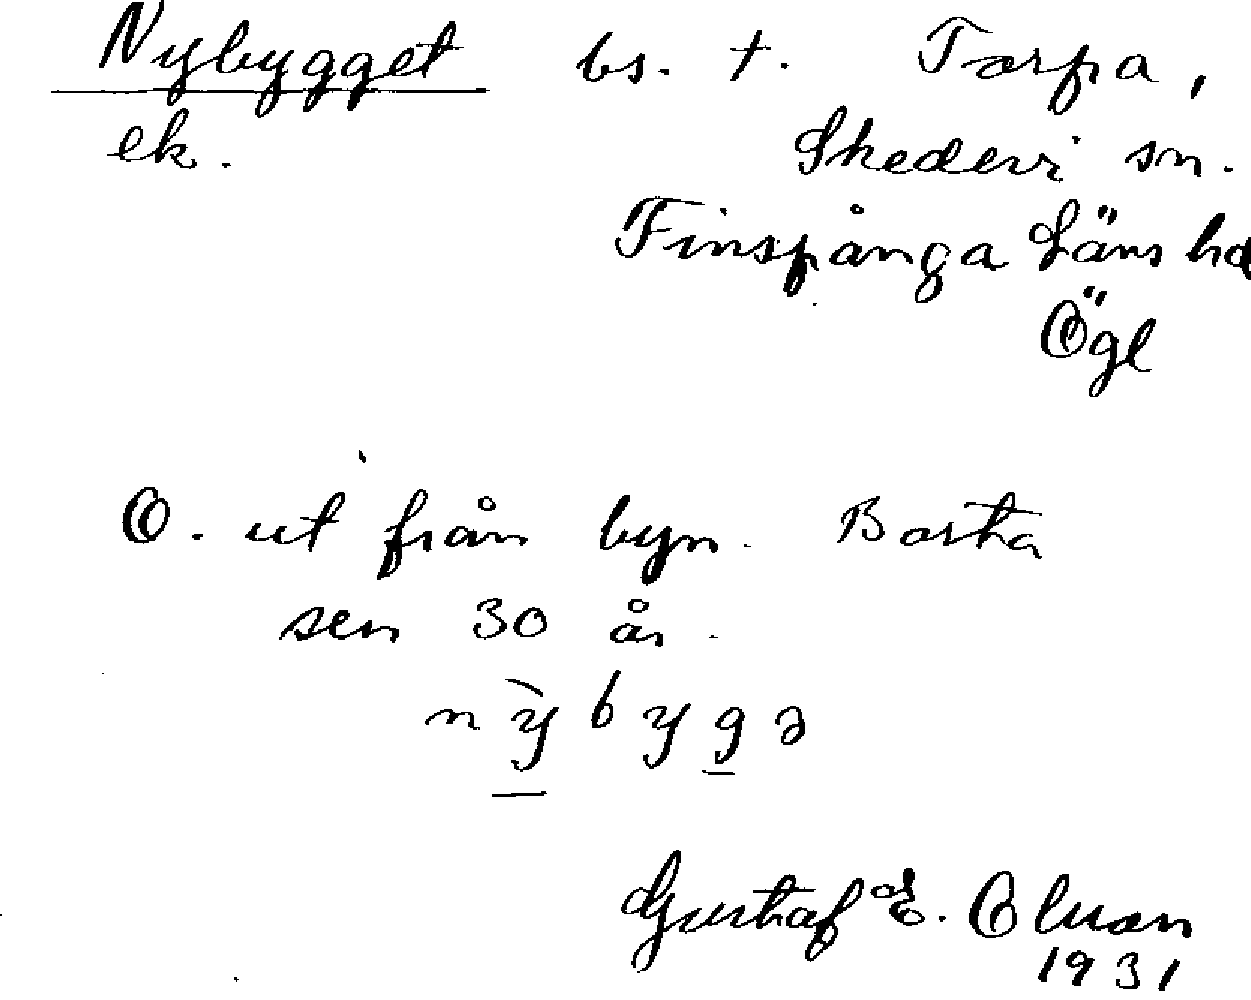 Nybygget bs. t. Torpa,
ek. Skedevi sn.
Finspånga Läns hd
Ögl
O. ut från byn. Borta
sen 30 år.
nỳbygə
Gustaf E. Olsson
1931